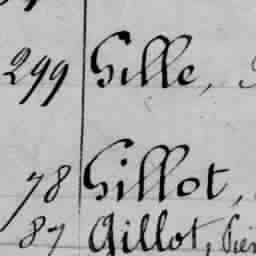 299 Gille,
78 Gillot,
87 Gillot,